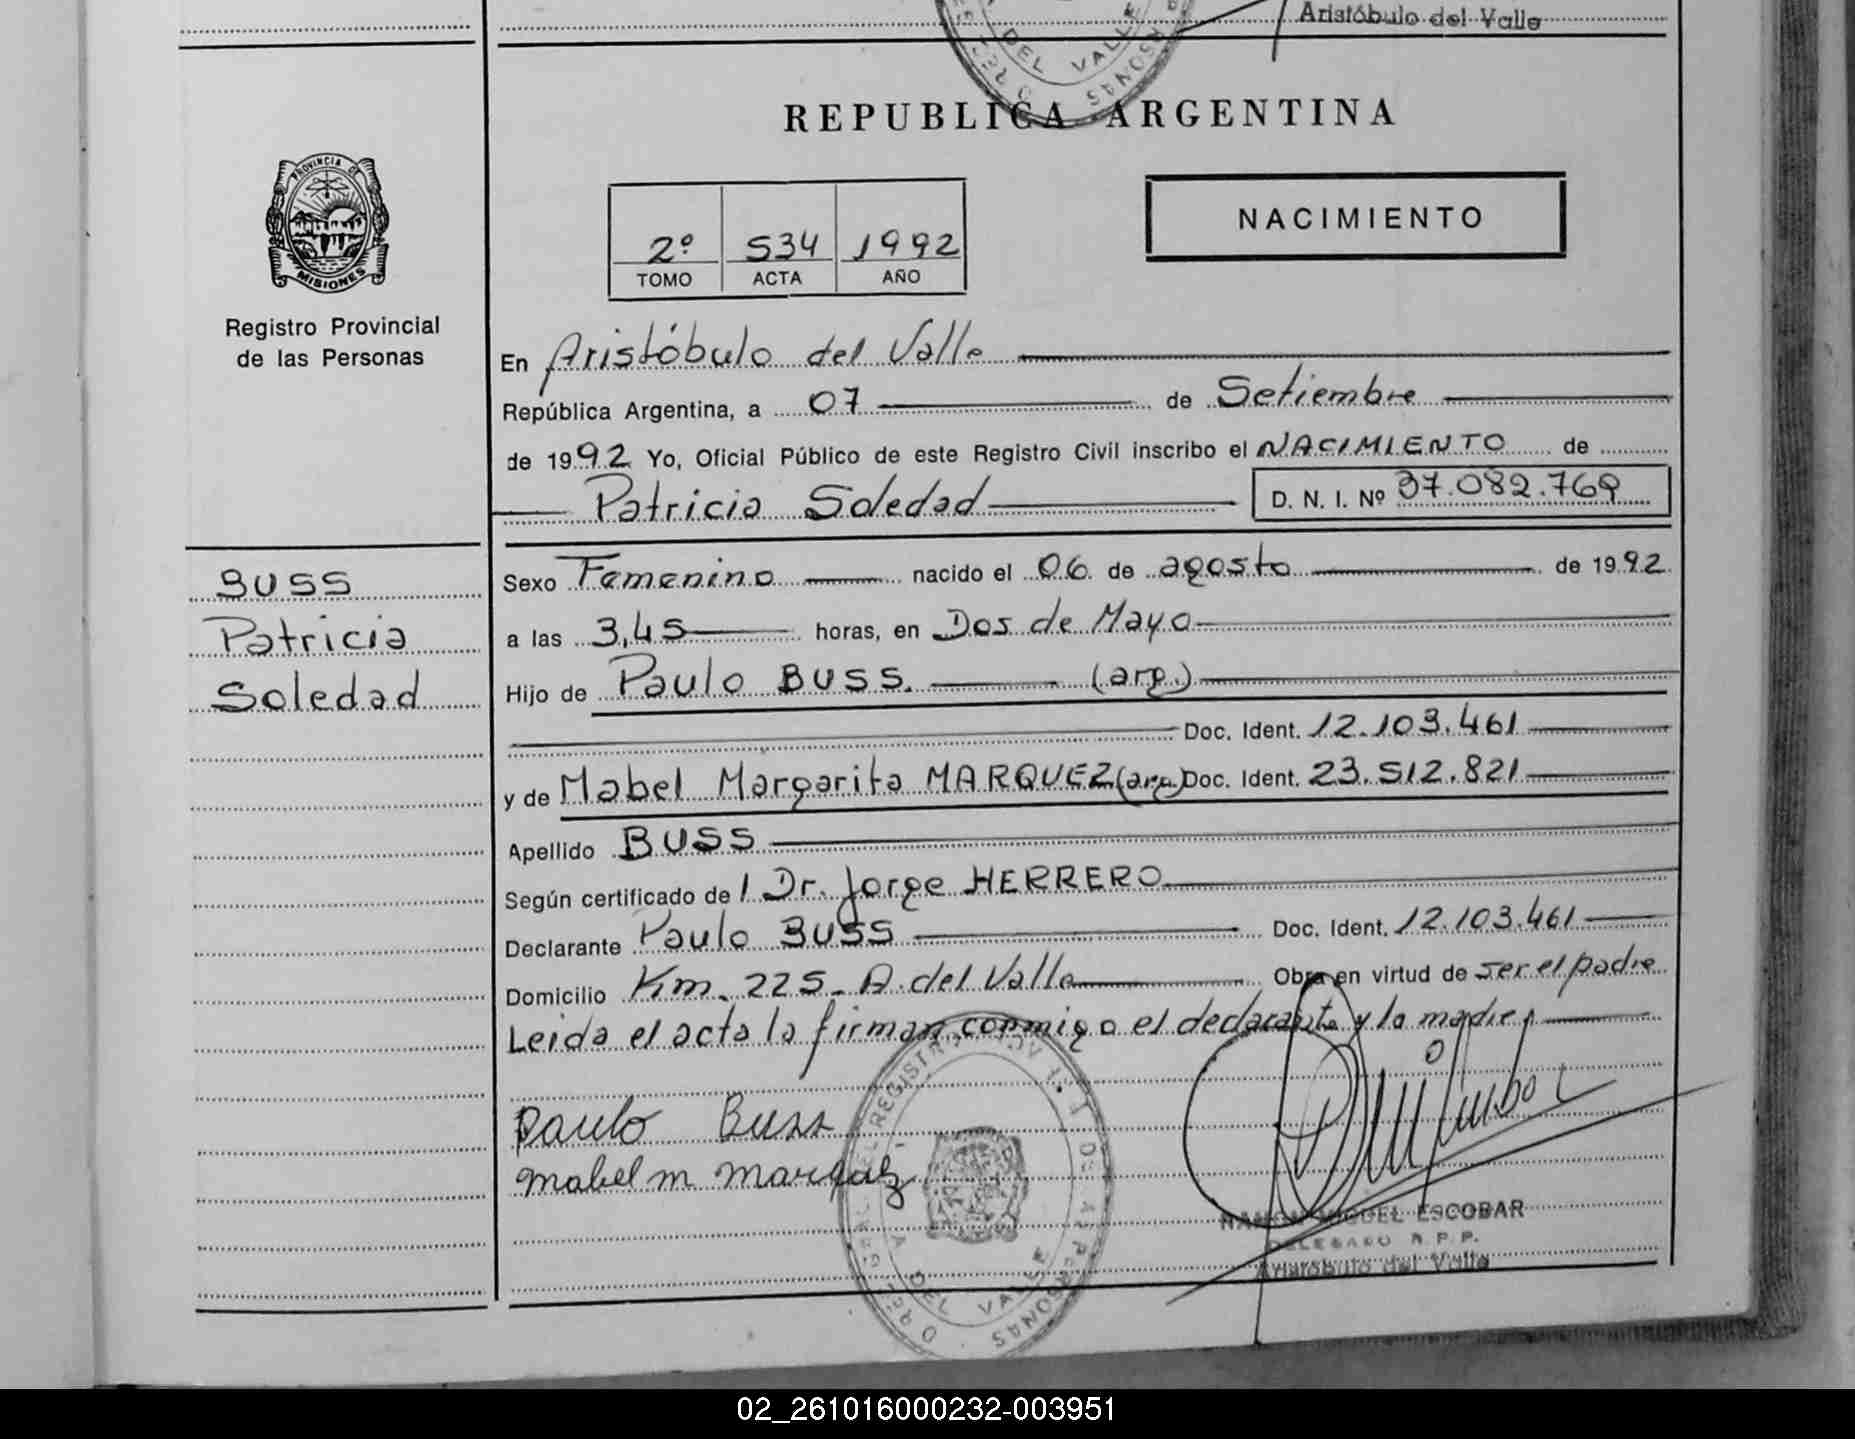 Aristóbulo del Valle
DEL VALLE
REPUBLICA ARGENTINA
PROVINCIA DE
MISIONES
Registro Provincial
de las Personas
2º 534 1992
TOMO ACTA AÑO
NACIMIENTO
En Aristóbulo del Valle
República Argentina, a 07 de Setiembre
de 1992 Yo, Oficial Público de este Registro Civil inscribo el NACIMIENTO de
Patricia Soledad D. N. I. Nº 37.082.769
BUSS
Patricia
Soledad
Sexo Femenino nacido el 06 de agosto de 1992
a las 3,45 horas, en Dos de Mayo
Hijo de Paulo BUSS. (arg.)
Doc. Ident. 12.103.461
y de Mabel Margarita MARQUEZ (arg.) Doc. Ident. 23.512.821
Apellido BUSS
Según certificado de l Dr. Jorge HERRERO
Declarante Paulo BUSS Doc. Ident. 12.103.461
Domicilio Km. 225 - A. del Valle Obra en virtud de ser el padre
Leida el acta la firman conmigo el declarante y la madre
Paulo Buss
Mabel M Marquez
DEL VALLE
PERSONAS
RAMON MIGUEL ESCOBAR
DELEGADO R.P.P.
Aristóbulo del Valle
02_261016000232-003951